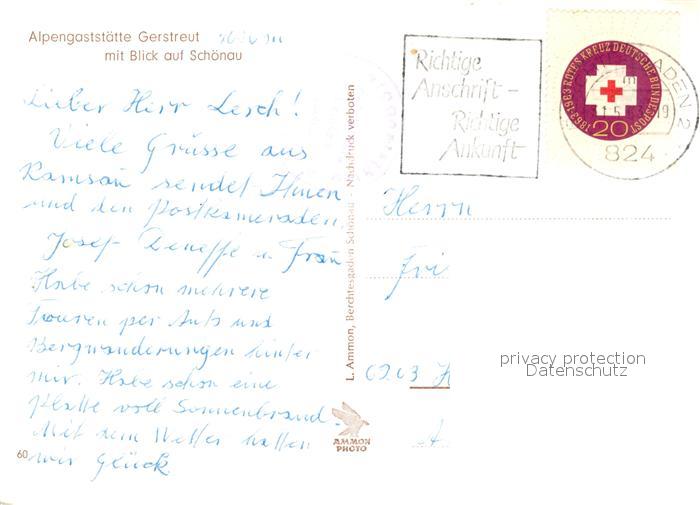 Alpengaststätte Gerstreut
mit Blick auf Schönau
Lieber Herr Lesch!
Viele Grüsse aus
Ramsau sendet Ihnen
und den Postkameraden
Josef Deneffe u. Frau
Habe schon mehrere
Touren per Auto und
Bergwanderungen hinter
mir. Habe schon eine
Platte voll Sonnenbrand.
Mit dem Wetter hatten
wir Glück
60
L. Ammon, Berchtesgaden Schönau - Nachdruck verboten
AMMON
PHOTO
Richtige
Anschrift -
Richtige
Ankunft
1863-1963 ROTES KREUZ DEUTSCHE BUNDESPOST
20
ADEN 2
824
Herrn
Fri
privacy protection
Datenschutz